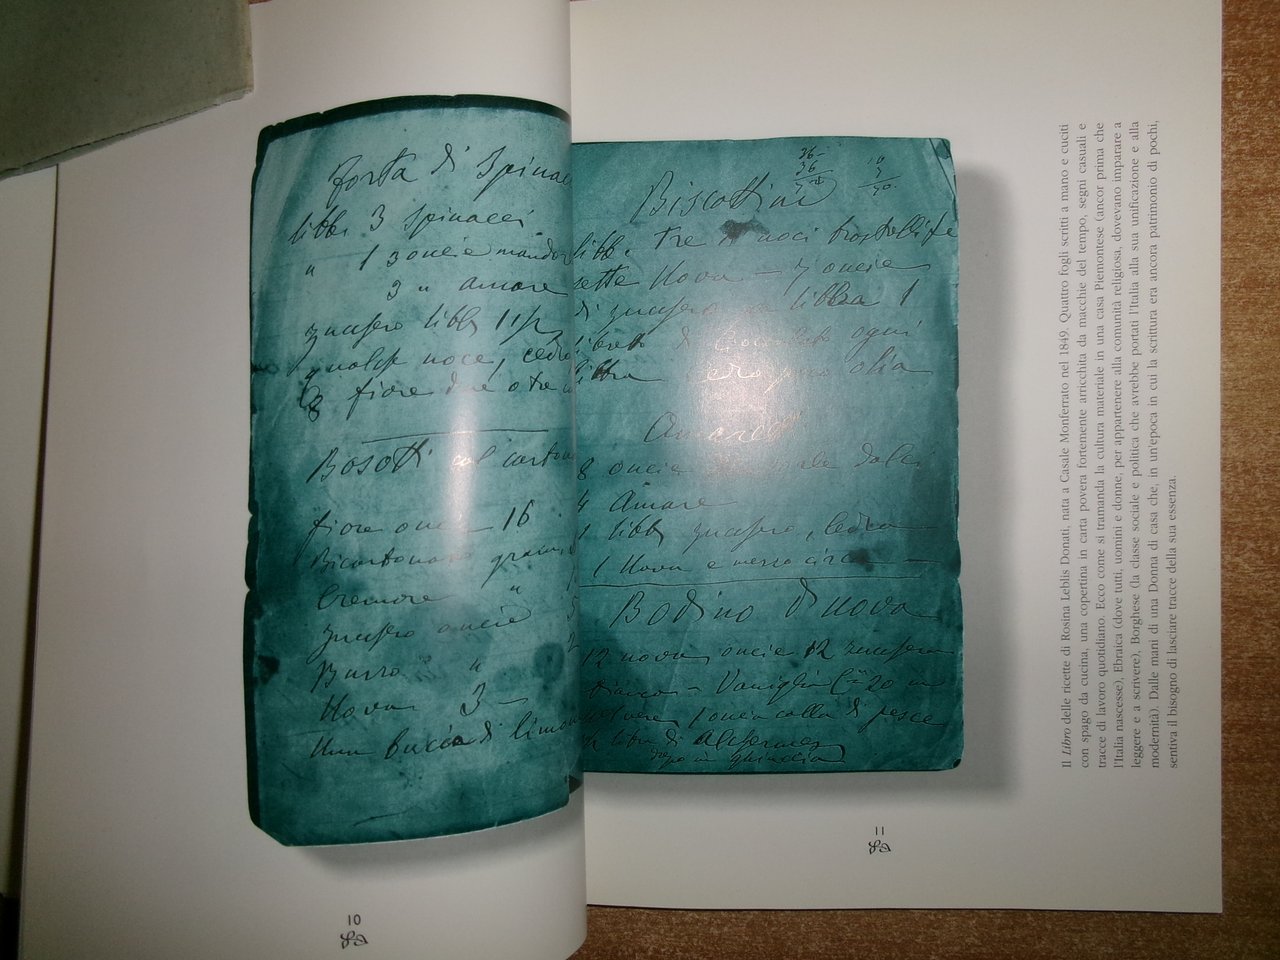 Torta di Spinac
libb. 3 spinacci
" 1 3 oncie mandor
3 " amare
zucchero libb 1 1/2
qualche noce, cedro
8 fiore due o tre
Bosotti col carbon
fiore oncie 16
Bicarbonato gram.
Cremore "
zucchero oncie
Burro "
Uova 3
Una buccia di limon
10
36
36
10
Biscottini
libb. tre di noci
sette Uova - 3 oncie
di zucchero libbra 1
di cioccolato ogni
libbra
Amaretti
8 oncie dolci
4 Amare
1 libb zucchero, Cedro
1 Uova e mezzo circa
Bodino d'uova
12 uova, oncie 12 zucchero
bianco - Vaniglia C 20
1 oncia colla di pesce
libra di Alchermes
dopo in ghiaccia
11
Il Libro delle ricette di Rosina Leblis Donati, nata a Casale Monferrato nel 1849. Quattro fogli scritti a mano e cuciti
con spago da cucina, una copertina in carta povera fortemente arricchita da macchie del tempo, segni casuali e
tracce di lavoro quotidiano. Ecco come si tramanda la cultura materiale in una casa Piemontese (ancor prima che
l'Italia nascesse), Ebraica (dove tutti, uomini e donne, per appartenere alla comunità religiosa, dovevano imparare a
leggere e a scrivere), Borghese (la classe sociale e politica che avrebbe portati l'Italia alla sua unificazione e alla
modernità). Dalle mani di una Donna di casa che, in un'epoca in cui la scrittura era ancora patrimonio di pochi,
sentiva il bisogno di lasciare tracce della sua essenza.